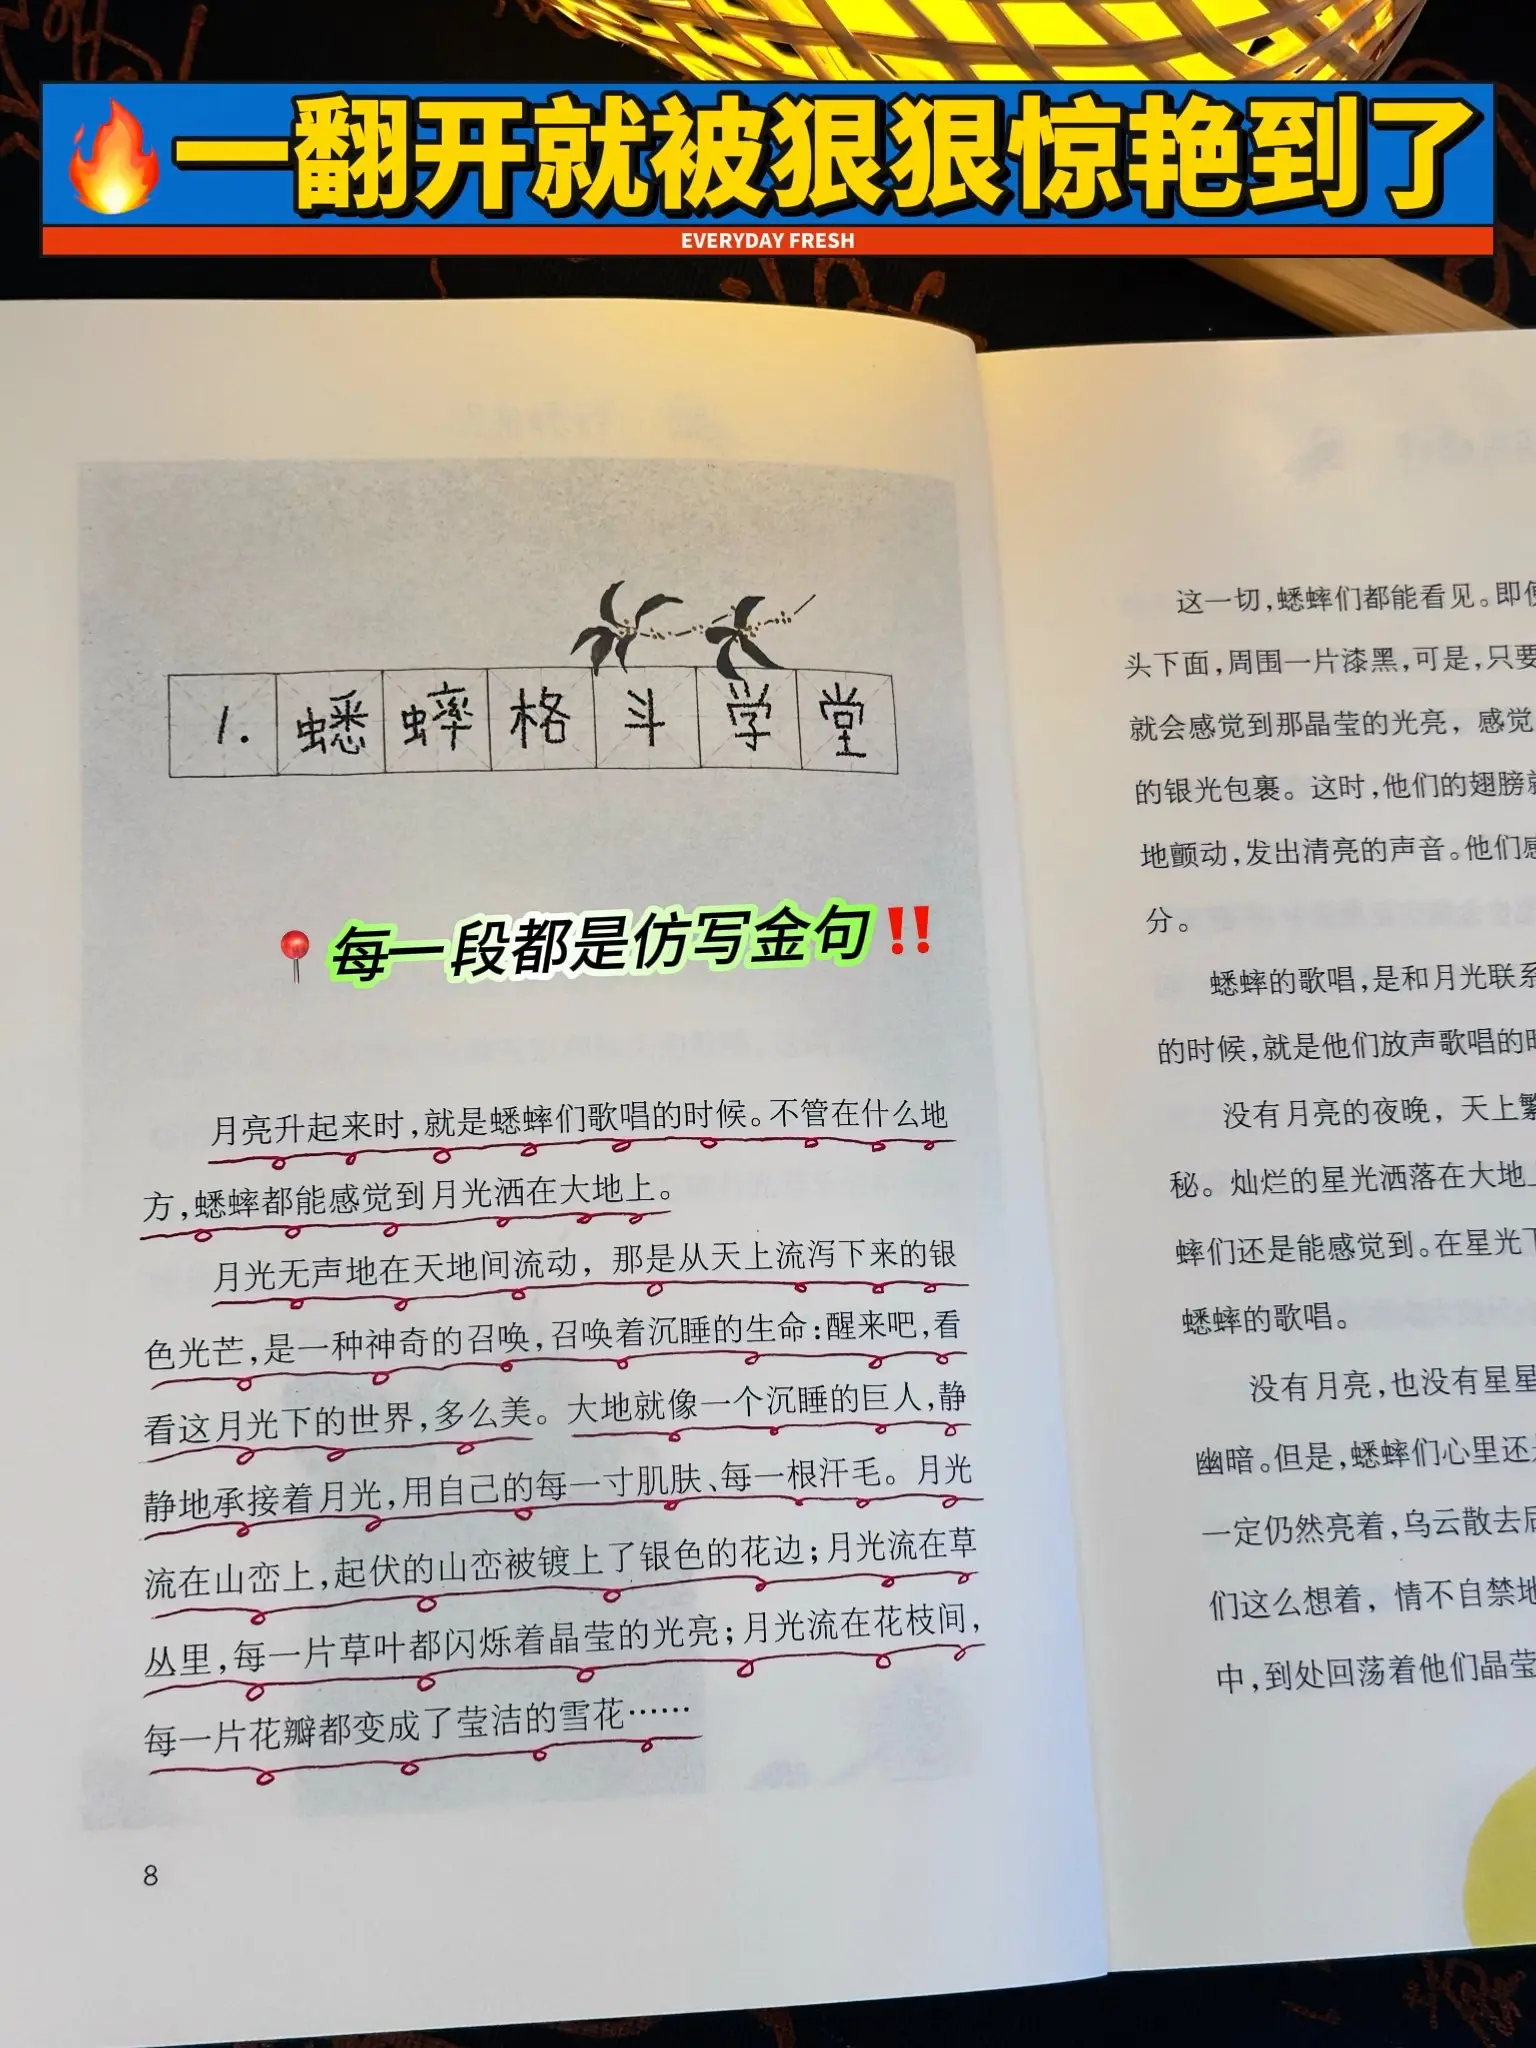 🔥一翻开就被狠狠惊艳到了
EVERYDAY FRESH
1.蟋蟀格斗学堂
📍每一段都是仿写金句‼️
月亮升起来时,就是蟋蟀们歌唱的时候。不管在什么地
方,蟋蟀都能感觉到月光洒在大地上。
月光无声地在天地间流动,那是从天上流泻下来的银
色光芒,是一种神奇的召唤,召唤着沉睡的生命:醒来吧,看
看这月光下的世界,多么美。大地就像一个沉睡的巨人,静
静地承接着月光,用自己的每一寸肌肤、每一根汗毛。月光
流在山峦上,起伏的山峦被镀上了银色的花边;月光流在草
丛里,每一片草叶都闪烁着晶莹的光亮;月光流在花枝间,
每一片花瓣都变成了莹洁的雪花……
8
这一切,蟋蟀们都能看见。即使
头下面,周围一片漆黑,可是,只要
就会感觉到那晶莹的光亮,感觉
的银光包裹。这时,他们的翅膀就
地颤动,发出清亮的声音。他们感
分。
蟋蟀的歌唱,是和月光联系
的时候,就是他们放声歌唱的时
没有月亮的夜晚,天上繁
秘。灿烂的星光洒落在大地上
蟀们还是能感觉到。在星光下
蟋蟀的歌唱。
没有月亮,也没有星星
幽暗。但是,蟋蟀们心里还是
一定仍然亮着,乌云散去后
们这么想着,情不自禁地
中,到处回荡着他们晶莹